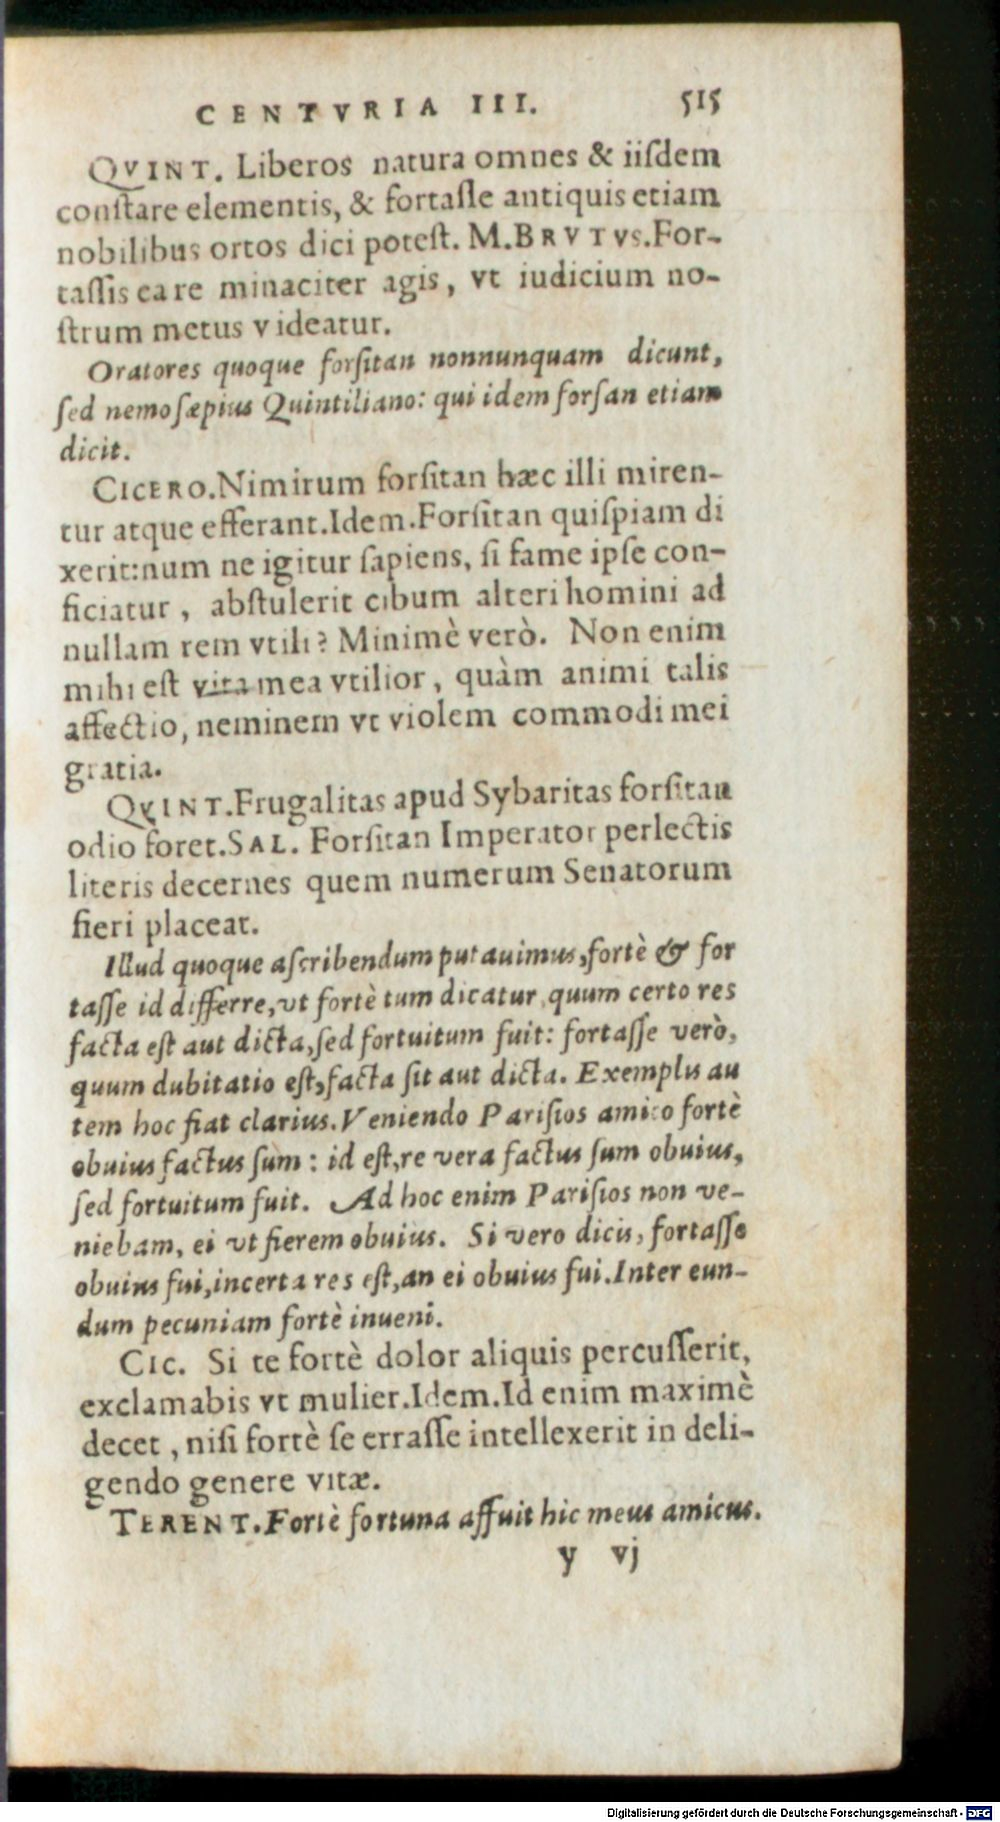 CENTVRIA III. 515
QVINT. Liberos natura omnes & iiſdem
conſtare elementis, & fortaſſe antiquis etiam
nobilibus ortos dici poteſt. M. BRVTVS. For-
taſſis ea re minaciter agis, vt iudicium no-
ſtrum metus videatur.
Oratores quoque forſitan nonnunquam dicunt,
ſed nemo ſæpius Quintiliano: qui idem forſan etiam
dicit.
CICERO. Nimirum forſitan hæc illi miren-
tur atque efferant. Idem. Forſitan quiſpiam di
xerit: num ne igitur ſapiens, ſi fame ipſe con-
ficiatur, abſtulerit cibum alteri homini ad
nullam rem vtili? Minimè verò. Non enim
mihi eſt vita mea vtilior, quàm animi talis
affectio, neminem vt violem commodi mei
gratia.
QVINT. Frugalitas apud Sybaritas forſitan
odio foret. SAL. Forſitan Imperator perlectis
literis decernes quem numerum Senatorum
fieri placeat.
Illud quoque aſcribendum putauimus, fortè & for
taſſe id differre, vt fortè tum dicatur, quum certo res
facta eſt aut dicta, ſed fortuitum fuit: fortaſſe verò,
quum dubitatio eſt, facta ſit aut dicta. Exemplis au
tem hoc fiat clarius. Veniendo Pariſios amico fortè
obuius factus ſum: id eſt, re vera factus ſum obuius,
ſed fortuitum fuit. Ad hoc enim Pariſios non ve-
niebam, ei vt fierem obuius. Si vero dicis, fortaſſe
obuius fui, incerta res eſt, an ei obuius fui. Inter eun-
dum pecuniam fortè inueni.
CIC. Si te fortè dolor aliquis percuſſerit,
exclamabis vt mulier. Idem. Id enim maximè
decet, niſi fortè ſe erraſſe intellexerit in deli-
gendo genere vitæ.
TERENT. Fortè fortuna affuit hic meus amicus.
y vj
Digitalisierung gefördert durch die Deutsche Forschungsgemeinschaft - DFG